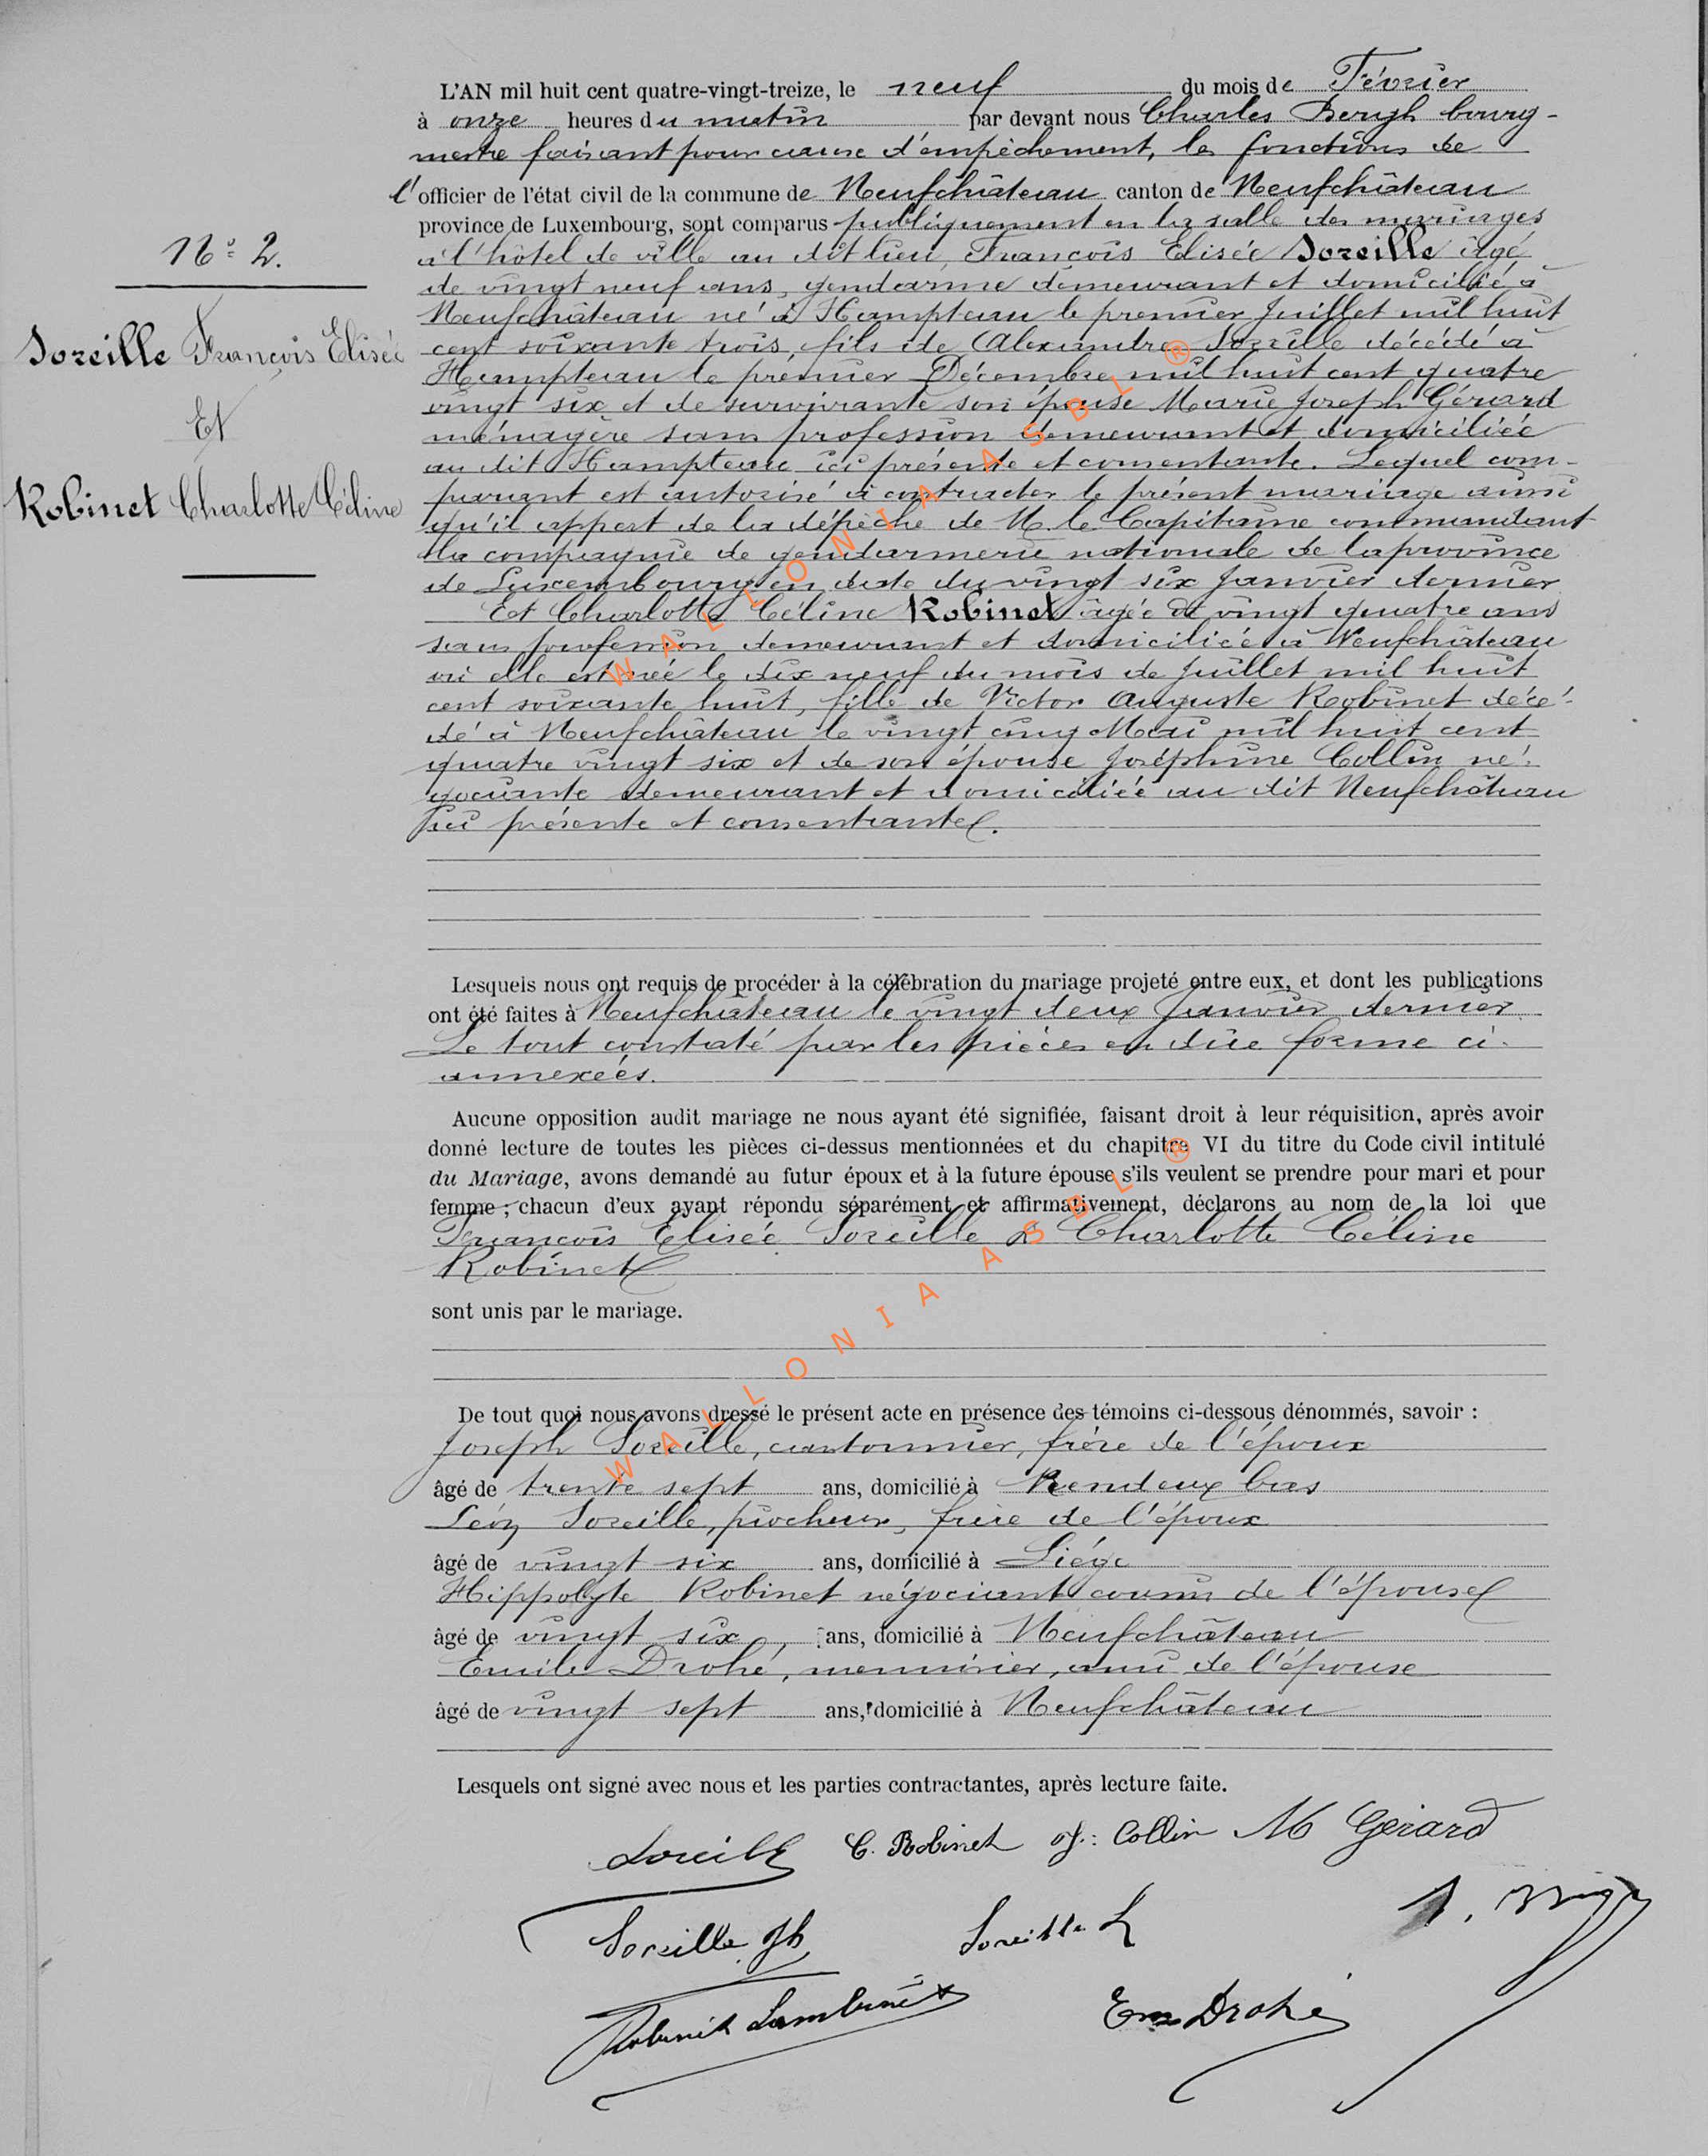 N° 2.
Soreille François Elisée
Et
Robinet Charlotte Céline
L'AN mil huit cent quatre-vingt-treize, le neuf du mois de Février
à onze heures du matin par devant nous Charles Bergh bourg-
mestre faisant pour cause d'empêchement, les fonctions de
l'officier de l'état civil de la commune de Neufchâteau canton de Neufchâteau
province de Luxembourg, sont comparus publiquement en la salle des mariages
à l'hôtel de ville au dit lieu, François Elisée Soreille âgé
de vingt neuf ans, gendarme demeurant et domicilié à
Neufchâteau né à Hampteau le premier Juillet mil huit
cent soixante trois, fils de Alexandre Soreille décédé à
Hampteau le premier Décembre mil huit cent quatre
vingt six et de survivante son épouse Marie Joseph Gérard
ménagère sans profession demeurant et domiciliée
au dit Hampteau ici présente et consentante. Lequel com-
parant est autorisé à contracter le présent mariage ainsi
qu'il appert de la dépêche de M. le Capitaine commandant
la compagnie de gendarmerie nationale de la province
de Luxembourg en date du vingt six Janvier dernier
Et Charlotte Céline Robinet âgée de vingt quatre ans
sans profession demeurant et domiciliée à Neufchâteau
où elle est née le dix neuf du mois de Juillet mil huit
cent soixante huit, fille de Victor Auguste Robinet décé-
dé à Neufchâteau le vingt cinq Mai mil huit cent
quatre vingt six et de son épouse Joséphine Collin né-
gociante demeurant et domiciliée au dit Neufchâteau
ici présente et consentante.
Lesquels nous ont requis de procéder à la célébration du mariage projeté entre eux, et dont les publications
ont été faites à Neufchâteau le vingt deux Janvier dernier
Le tout constaté par les pièces en due forme ci-
annexées.
Aucune opposition audit mariage ne nous ayant été signifiée, faisant droit à leur réquisition, après avoir
donné lecture de toutes les pièces ci-dessus mentionnées et du chapitre VI du titre du Code civil intitulé
du Mariage, avons demandé au futur époux et à la future épouse s'ils veulent se prendre pour mari et pour
femme ; chacun d'eux ayant répondu séparément et affirmativement, déclarons au nom de la loi que
François Elisée Soreille & Charlotte Céline
Robinet
sont unis par le mariage.
De tout quoi nous avons dressé le présent acte en présence des témoins ci-dessous dénommés, savoir :
Joseph Soreille, cantonnier, frère de l'époux
âgé de trente sept ans, domicilié à Rendeux bas
Léon Soreille, piocheur, frère de l'époux
âgé de vingt six ans, domicilié à Liége
Hippolyte Robinet négociant cousin de l'épouse
âgé de vingt six, ans, domicilié à Neufchâteau
Emile Drohé, menuisier, ami de l'épouse
âgé de vingt sept ans, domicilié à Neufchâteau
Lesquels ont signé avec nous et les parties contractantes, après lecture faite.
Soreille C. Robinet J. Collin M Gerard
Soreille Jh Soreille L
Robinet Lambinet Em Drohé
WALLONIA ASBL ®
WALLONIA ASBL ®